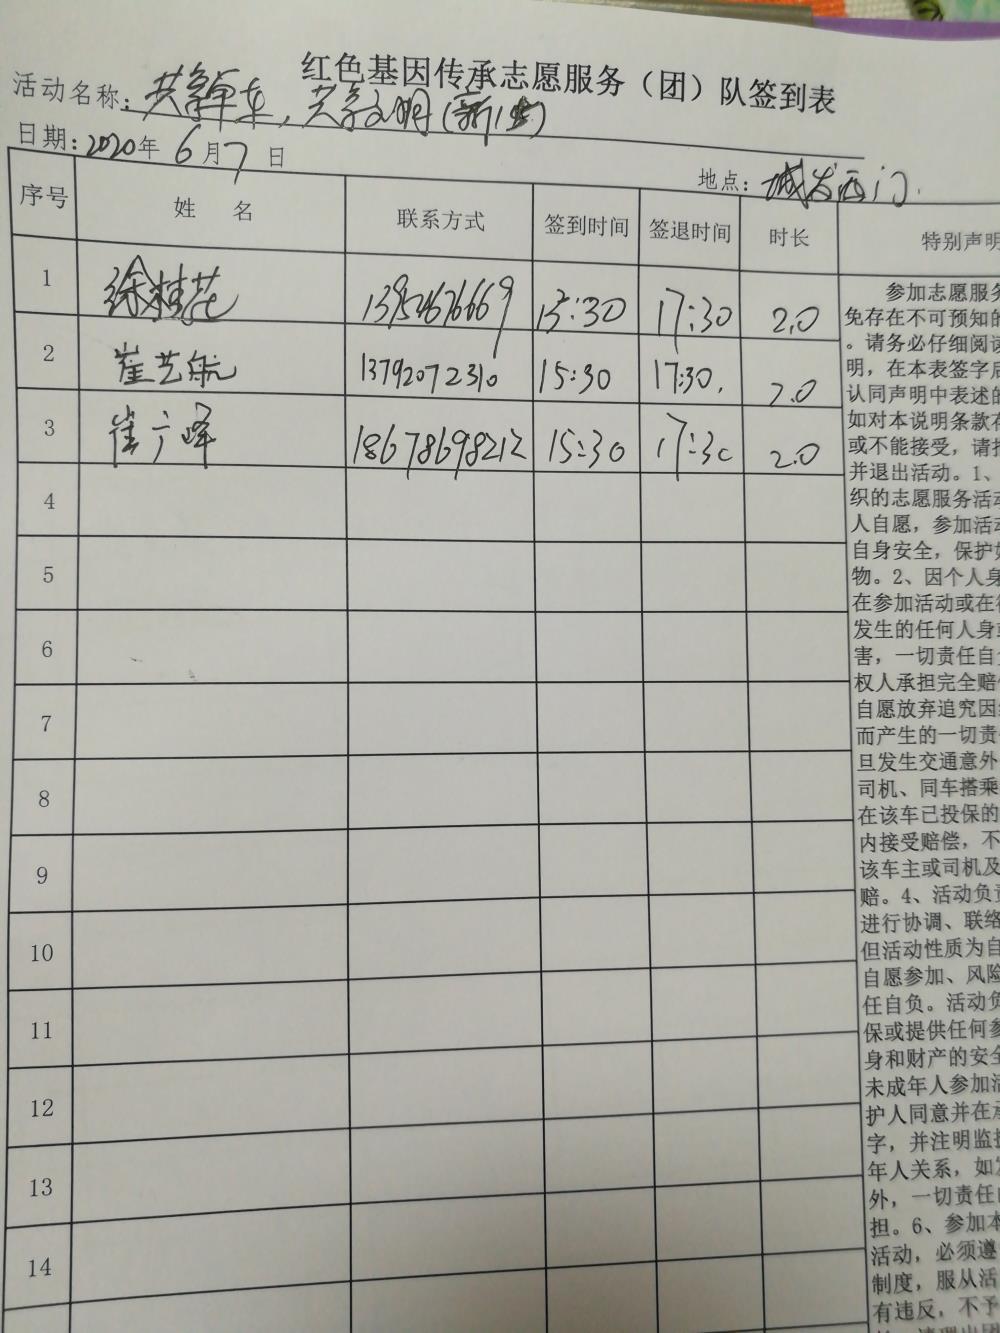 红色基因传承志愿服务（团）队签到表
活动名称：共享单车，共享文明（新1街）
日期：2020年6月7日
地点：城发西门
序号 姓 名 联系方式 签到时间 签退时间 时长 特别声明
1 徐桂花 13954676669 15:30 17:30 2.0
2 崔艺航 13792072310 15:30 17:30. 2.0
3 崔广峰 18678698212 15:30 17:30 2.0
4
5
6
7
8
9
10
11
12
13
14
参加志愿服务
免存在不可预知的
。请务必仔细阅读
明，在本表签字后
认同声明中表述的
如对本说明条款存
或不能接受，请
并退出活动。1、
织的志愿服务活动
人自愿，参加活动
自身安全，保护好
物。2、因个人身
在参加活动或在往
发生的任何人身或
害，一切责任自负
权人承担完全赔偿
自愿放弃追究因
而产生的一切责
旦发生交通意外
司机、同车搭乘
在该车已投保的
内接受赔偿，不
该车主或司机及
赔。4、活动负责
进行协调、联络
但活动性质为自
自愿参加、风险
任自负。活动负
保或提供任何参
身和财产的安全
未成年人参加活
护人同意并在承
字，并注明监护
年人关系，如发
外，一切责任
担。6、参加本
活动，必须遵
制度，服从活
有违反，不予